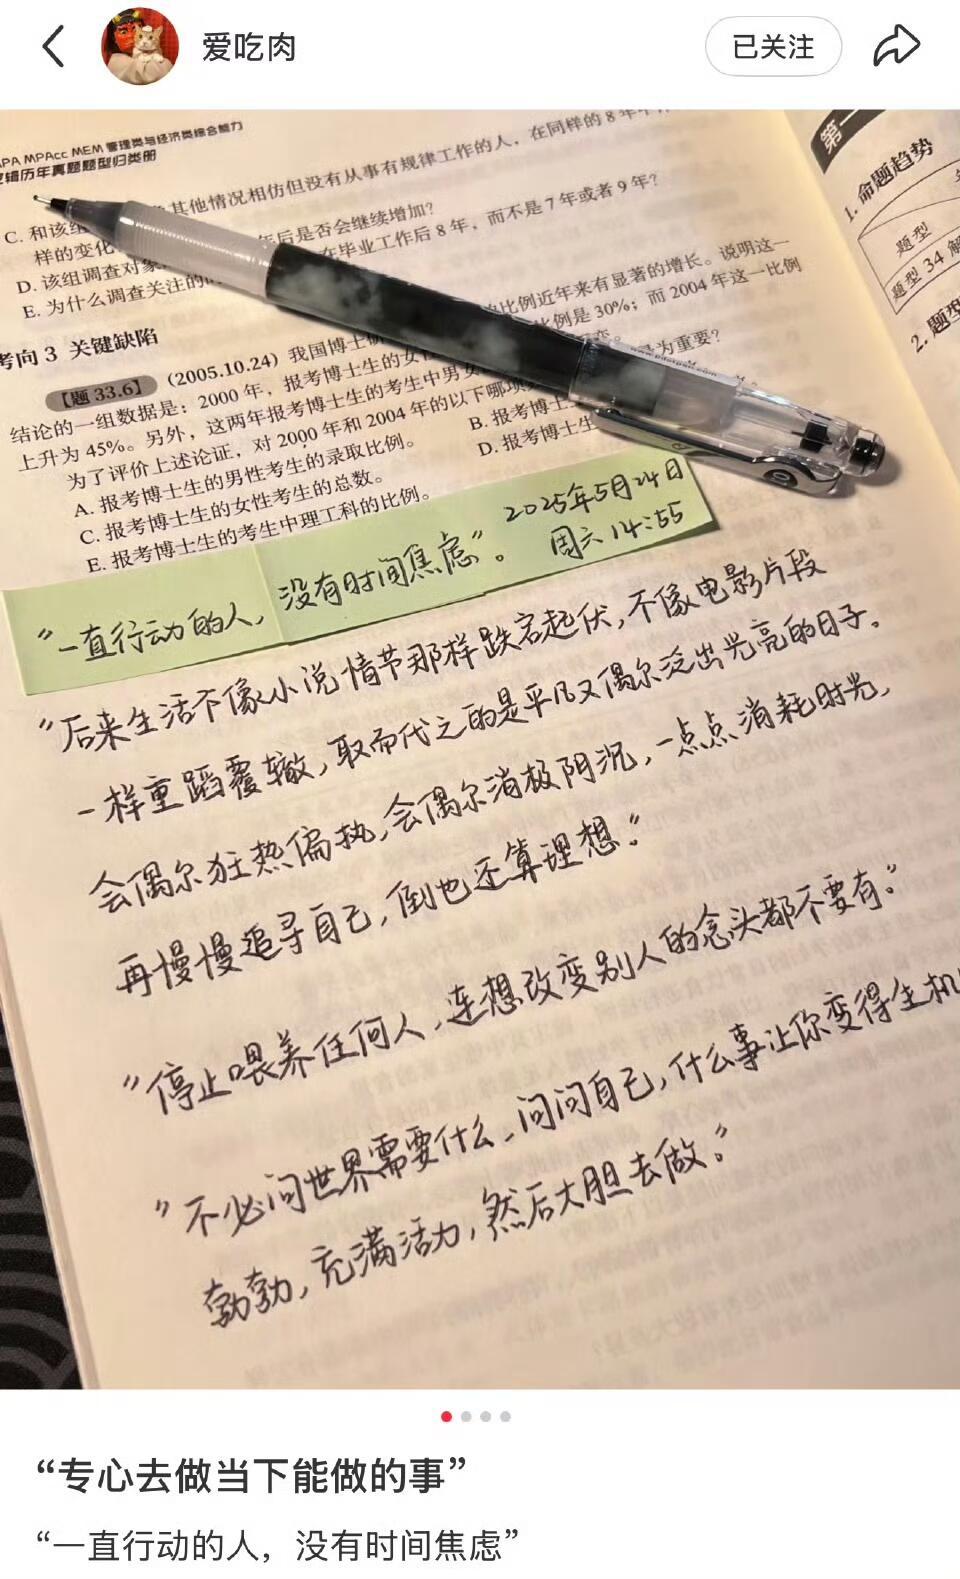 爱吃肉
已关注
MPAcc MEM 管理类与经济类综合能力
逻辑历年真题题型归类册
其他情况相仿但没有从事有规律工作的人，在同样的8年
C. 和该组
样的变化
年后是否会继续增加？
D. 该组调查对象
在毕业工作后8年，而不是7年或者9年？
E. 为什么调查关注的
考向3 关键缺陷
【题 33.6】 (2005.10.24) 我国博士
比例近年来有显著的增长。说明这一
结论的一组数据是：2000年，报考博士生的女性
比例是30%；而2004年这一比例
上升为45%。另外，这两年报考博士生的考生中男女
为了评价上述论证，对2000年和2004年的以下哪项
为重要？
A. 报考博士生的男性考生的录取比例。
B. 报考博士
C. 报考博士生的女性考生的总数。
D. 报考博士生
E. 报考博士生的考生中理工科的比例。
第一
1. 命题趋势
题型
题型 34 解
2. 题型
2025年5月24日
周六 14:55
“一直行动的人，没有时间焦虑”。
“后来生活不像小说情节那样跌宕起伏，不像电影片段
一样重蹈覆辙，取而代之的是平凡又偶尔泛出光亮的日子。
会偶尔狂热偏执，会偶尔消极阴沉，一点点消耗时光，
再慢慢追寻自己，倒也还算理想。”
“停止喂养任何人，连想改变别人的念头都不要有。”
“不必问世界需要什么，问问自己，什么事让你变得生机
勃勃，充满活力，然后大胆去做。”
“专心去做当下能做的事”
“一直行动的人，没有时间焦虑”